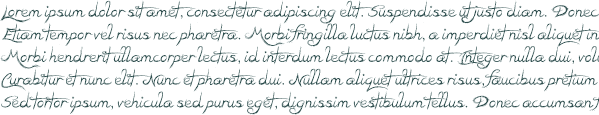 Lorem ipsum dolor sit amet, consectetur adipiscing elit. Suspendisse ut justo diam. Donec
Etiam tempor vel risus nec pharetra. Morbi fringilla luctus nibh, a imperdiet nisl aliquet in
Morbi hendrerit ullamcorper lectus, id interdum lectus commodo at. Integer nulla dui, volu
Curabitur et nunc elit. Nunc et pharetra dui. Nullam aliquet ultrices risus, faucibus pretium
Sed tortor ipsum, vehicula sed purus eget, dignissim vestibulum tellus. Donec accumsan t